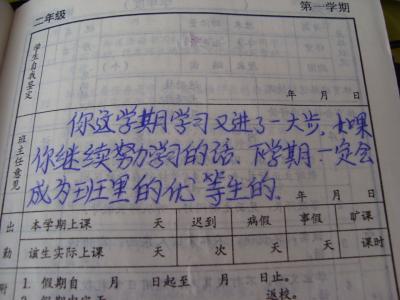 二年级 第一学期
学生自我鉴定
年 月 日
班主任意见
你这学期学习又进了一大步,如果
你继续努力学习的话,下学期一定会
成为班里的优等生的.
年 月 日
出勤
本学期上课 天 迟到 病假 事假 旷课
该生实际上课 天 次 天 天 课时
1. 假期自 月 日起至 月 日止。
返校。